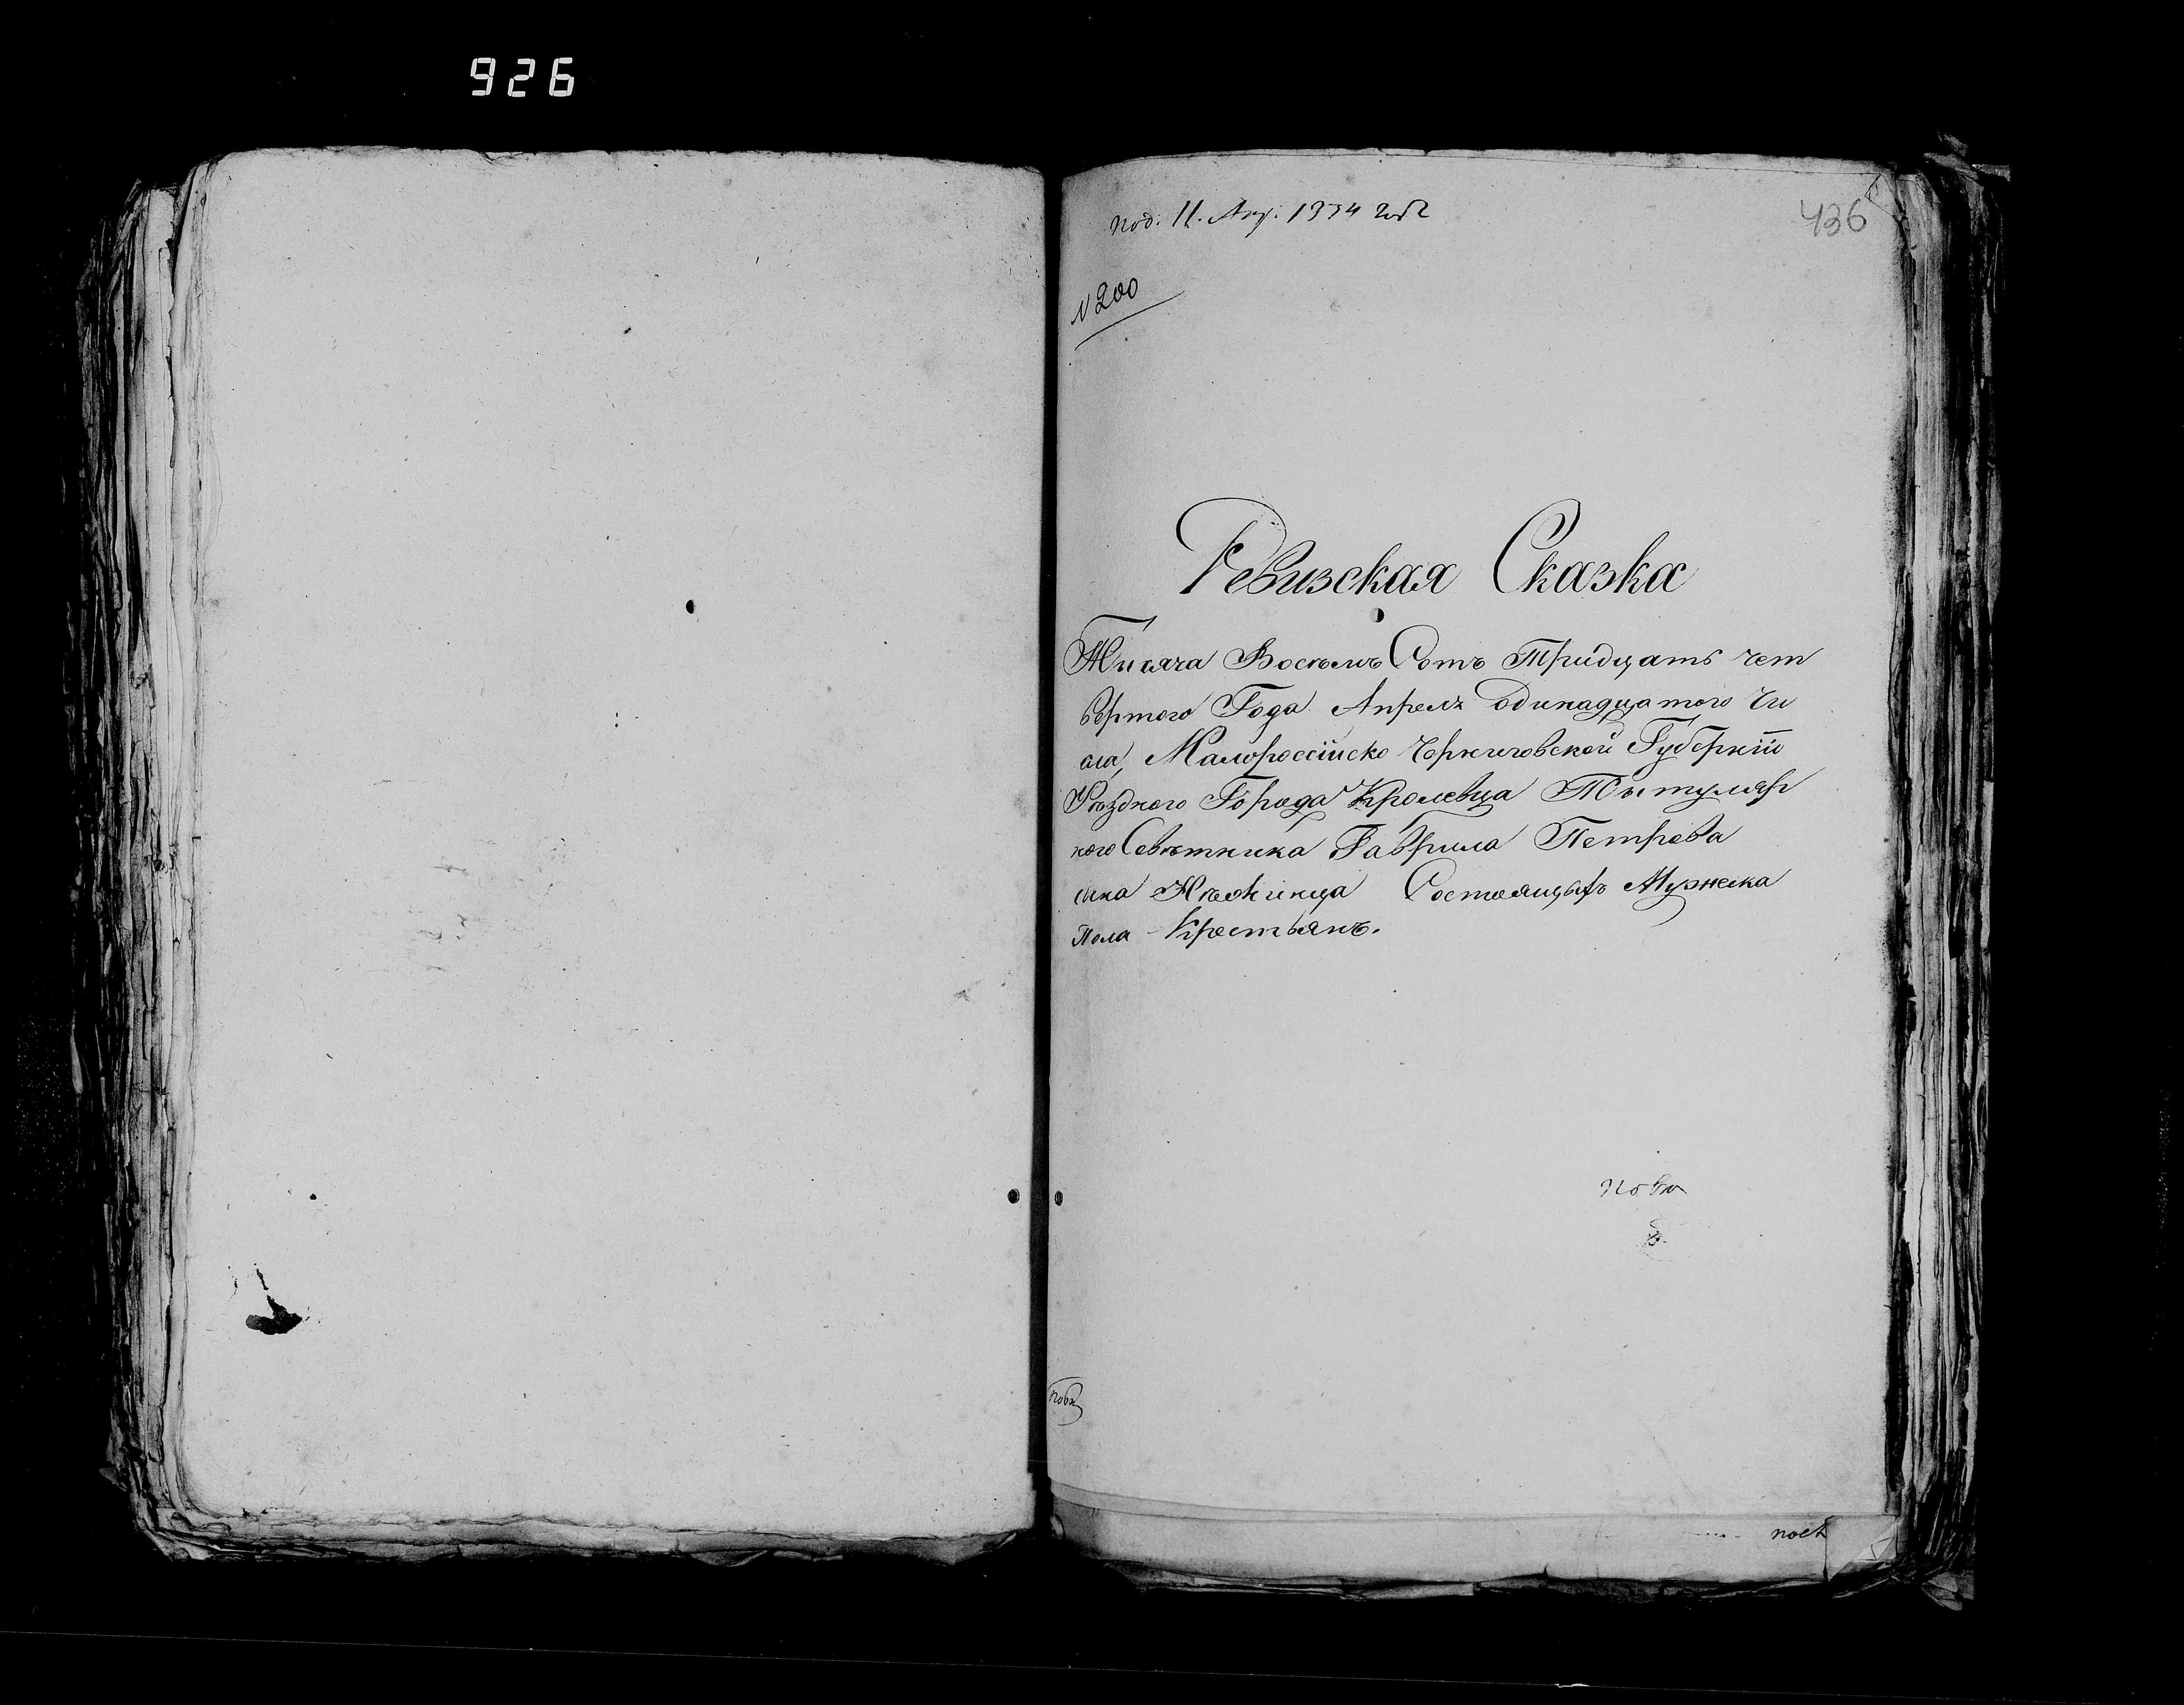 926
436
под: 11. Апр: 1834 года
N 200
Ревизская Сказка
Тисяча Восемъ Сотъ Тридцать чет
вертого Года Апреля одинадцатого Чи
сла, Малороссійско Черниговской Губерніи
Уѣздного Города Кролевца Тытуляр
ного Совѣтника Гаврила Петрова
сына Нѣжинца Состоящыхъ Мужеска
Пола Крестьянъ.